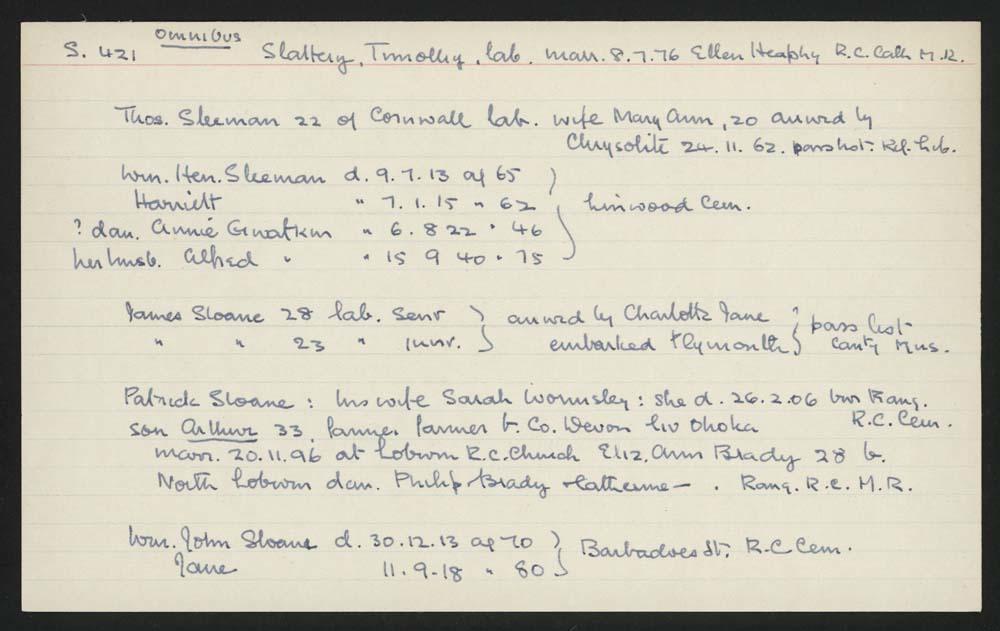 Omnibus
S. 421 Slattery, Timothy, lab. marr. 8.7.76 Ellen Heaphy R.C. Cath M.R.
Thos. Sleeman 22 of Cornwall lab. wife Mary Ann, 20 arrived by
Chrysolite 24.11.62. pass list. Ref. Lib.
Wm. Hen. Sleeman d. 9.7.13 ag 65
Harriett " 7.1.15 " 62 Linwood Cem.
? dau. Annie Gwatkin " 6.8 22 " 46
her husb. Alfred " " 15 9 40 " 75
James Sloane 28 lab. Senr arrived by Charlotte Jane pass list
" " 23 " Junr. embarked Plymouth Canty Mus.
Patrick Sloane : his wife Sarah Wormsley : she d. 26.2.06 bur Rang.
son Arthur 33, farmer b. Co. Devon liv Ohoka R.C. Cem.
marr. 20.11.96 at Loburn R.C. Church Eliz. Ann Brady 28 b.
North Loburn dau. Philip Brady Catherine — . Rang. R.C. M.R.
Wm. John Sloane d. 30.12.13 ag 70 Barbadoes St. R.C Cem.
Jane 11.9.18 " 80